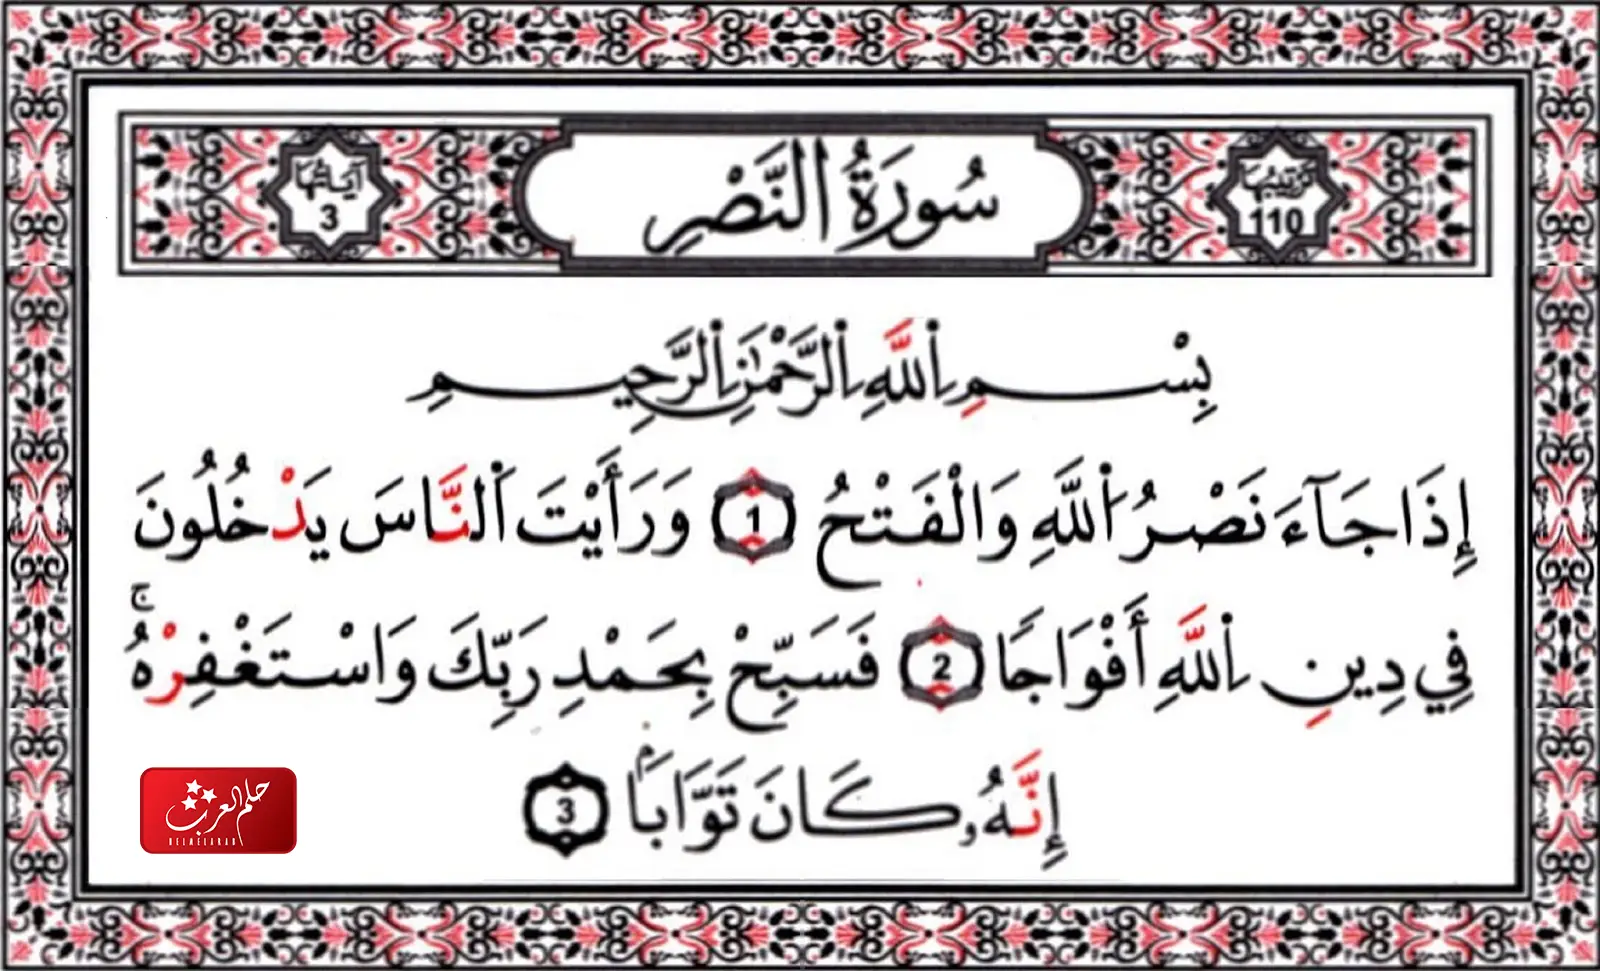 ترتيبها
110
سُورَةُ النَّصْرِ
آيَاتُهَا
3
بِسْمِ اِ۬للَّهِ اِ۬لرَّحْمَٰنِ اِ۬لرَّحِيمِ
إِذَا جَآءَ نَصْرُ اُ۬للَّهِ وَالْفَتْحُ 1 وَرَأَيْتَ اَ۬لنَّاسَ يَدْخُلُونَ
فِي دِينِ اِ۬للَّهِ أَفْوَاجًا 2 فَسَبِّحْ بِحَمْدِ رَبِّكَ وَاسْتَغْفِرْهُۚ
إِنَّهُۥ كَانَ تَوَّابَاۢ 3
حلم العرب
HELMELARAB